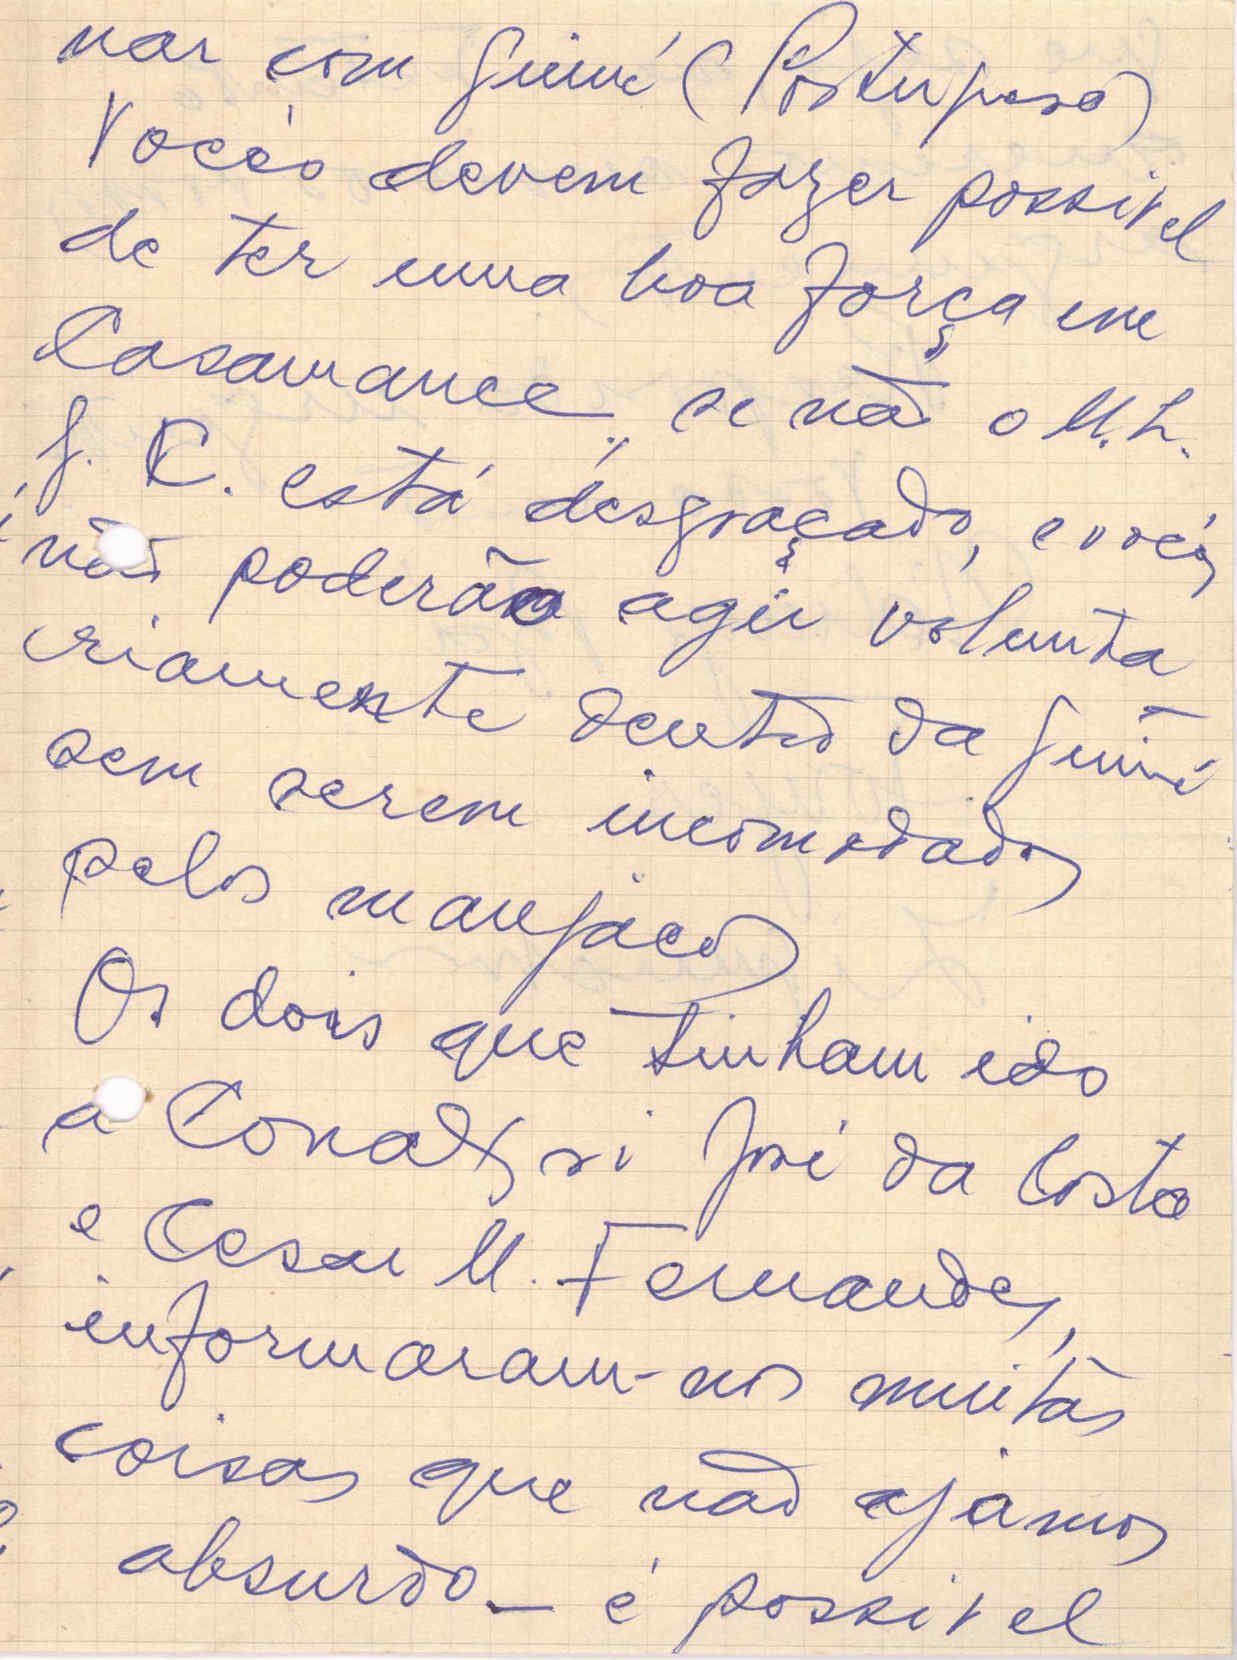 nar com Guiné (Portuguesa)
Vocês devem fazer possivel
de ter uma boa força em
Casamance, se não o M.L.
G.C. está desgraçado, e vocês
não poderão agir volunta
riamente dentro da Guiné
sem serem incomodados
pelos manjacos
Os dois que tinham ido
a Conakry si José da Costa
e Cesar M. Fernandes,
informaram-nos muitas
coisas que não ajamos
absurdo_ é possivel